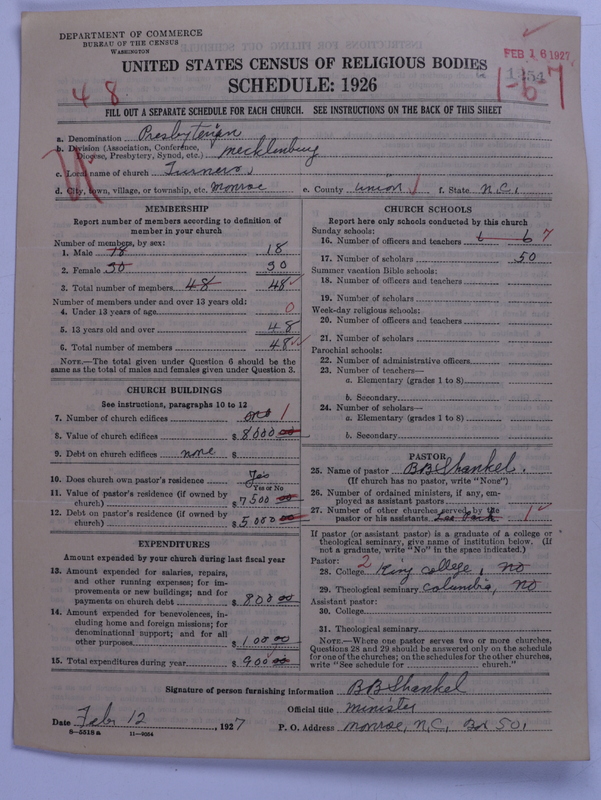 DEPARTMENT OF COMMERCE
BUREAU OF THE CENSUS
WASHINGTON
FEB 16 1927
1-67
UNITED STATES CENSUS OF RELIGIOUS BODIES
SCHEDULE: 1926
48
FILL OUT A SEPARATE SCHEDULE FOR EACH CHURCH. SEE INSTRUCTIONS ON THE BACK OF THIS SHEET
a. Denomination Presbyterian
b. Division (Association, Conference,
Diocese, Presbytery, Synod, etc.) Mecklenburg
c. Local name of church Turners
d. City, town, village, or township, etc. Monroe e. County Union f. State N.C.
MEMBERSHIP
Report number of members according to definition of
member in your church
Number of members, by sex:
1. Male 18 18
2. Female 30 30
3. Total number of members 48 48
Number of members under and over 13 years old:
4. Under 13 years of age 0
5. 13 years old and over 48
6. Total number of members 48
NOTE.—The total given under Question 6 should be the
same as the total of males and females given under Question 3.
CHURCH BUILDINGS
See instructions, paragraphs 10 to 12
7. Number of church edifices one 1
8. Value of church edifices $8000 00
9. Debt on church edifices none $
10. Does church own pastor's residence Yes
Yes or No
11. Value of pastor's residence (if owned by
church) $7500 00
12. Debt on pastor's residence (if owned by
church) $5.000 00
EXPENDITURES
Amount expended by your church during last fiscal year
13. Amount expended for salaries, repairs,
and other running expenses; for im-
provements or new buildings; and for
payments on church debt $800 00
14. Amount expended for benevolences, in-
cluding home and foreign missions; for
denominational support; and for all
other purposes $100 00
15. Total expenditures during year $900 00
CHURCH SCHOOLS
Report here only schools conducted by this church
Sunday schools:
16. Number of officers and teachers 6 6 7
17. Number of scholars 50
Summer vacation Bible schools:
18. Number of officers and teachers
19. Number of scholars
Week-day religious schools:
20. Number of officers and teachers
21. Number of scholars
Parochial schools:
22. Number of administrative officers
23. Number of teachers—
a. Elementary (grades 1 to 8)
b. Secondary
24. Number of scholars—
a. Elementary (grades 1 to 8)
b. Secondary
PASTOR
25. Name of pastor BB Shankel.
(If church has no pastor, write "None")
26. Number of ordained ministers, if any, em-
ployed as assistant pastors
27. Number of other churches served by the
pastor or his assistants 1
If pastor (or assistant pastor) is a graduate of a college or
theological seminary, give name of institution below. (If
not a graduate, write "No" in the space indicated.)
Pastor: 2
28. College King College, No
29. Theological seminary Columbia, No
Assistant pastor:
30. College
31. Theological seminary
NOTE.—Where one pastor serves two or more churches,
Questions 28 and 29 should be answered only on the schedule
for one of the churches; on the schedules for the other churches,
write "See schedule for church."
Signature of person furnishing information BB Shankel
Official title Minister
Date Feb 12, 1927 P. O. Address Monroe, N.C, Box 501
8—5518 a 11—9054